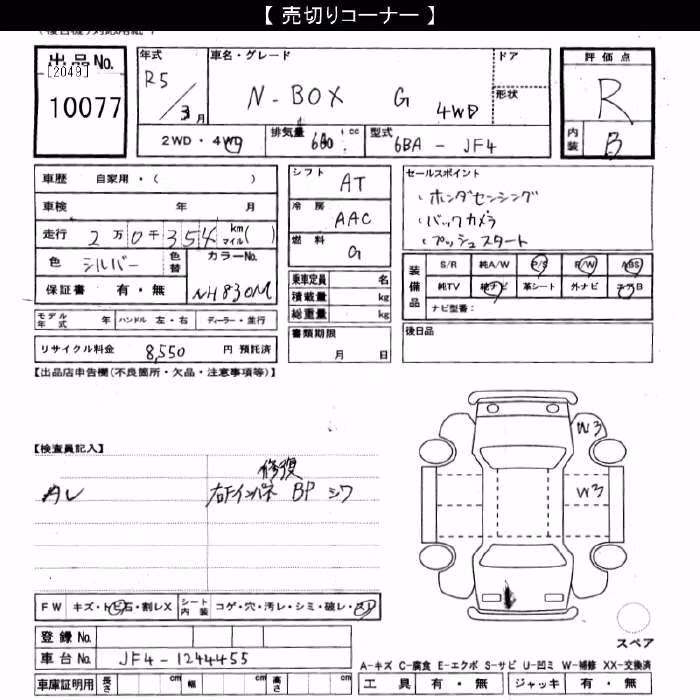 【 売切りコーナー 】
出品No.
[2049]
10077
年式 R5/3月
車名・グレード N-BOX G 4WD
ドア
形状
評価点 R
内装 B
2WD・4WD
排気量 660 cc
型式 6BA - JF4
車歴 自家用・( )
車検 年 月
走行 2万0千354 km マイル( )
色 シルバー 色替 カラーNo. NH830M
保証書 有・無
シフト AT
冷房 AAC
燃料 G
乗車定員 名
積載量 kg
総重量 kg
セールスポイント
ホンダセンシング
バックカメラ
プッシュスタート
装備品
S/R 純A/W P/S P/W ABS
純TV 純ナビ 革シート 外ナビ エアB
ナビ型番:
モデル年式 年 ハンドル 左・右 ディーラー・並行
書類期限 月 日
後日品
リサイクル料金 8,550 円 預託済
【出品店申告欄(不良箇所・欠品・注意事項等)】
【検査員記入】
修復
右Fインパネ BP シワ
W3
W3
FW キズ・トビ石・割レX
シート内装 コゲ・穴・汚レ・シミ・破レ・スレ
登録No.
車台No. JF4-1244455
車庫証明用 長さ cm 幅 cm 高さ cm
スペア
A-キズ C-腐食 E-エクボ S-サビ U-凹ミ W-補修 XX-交換済
工具 有・無 ジャッキ 有・無